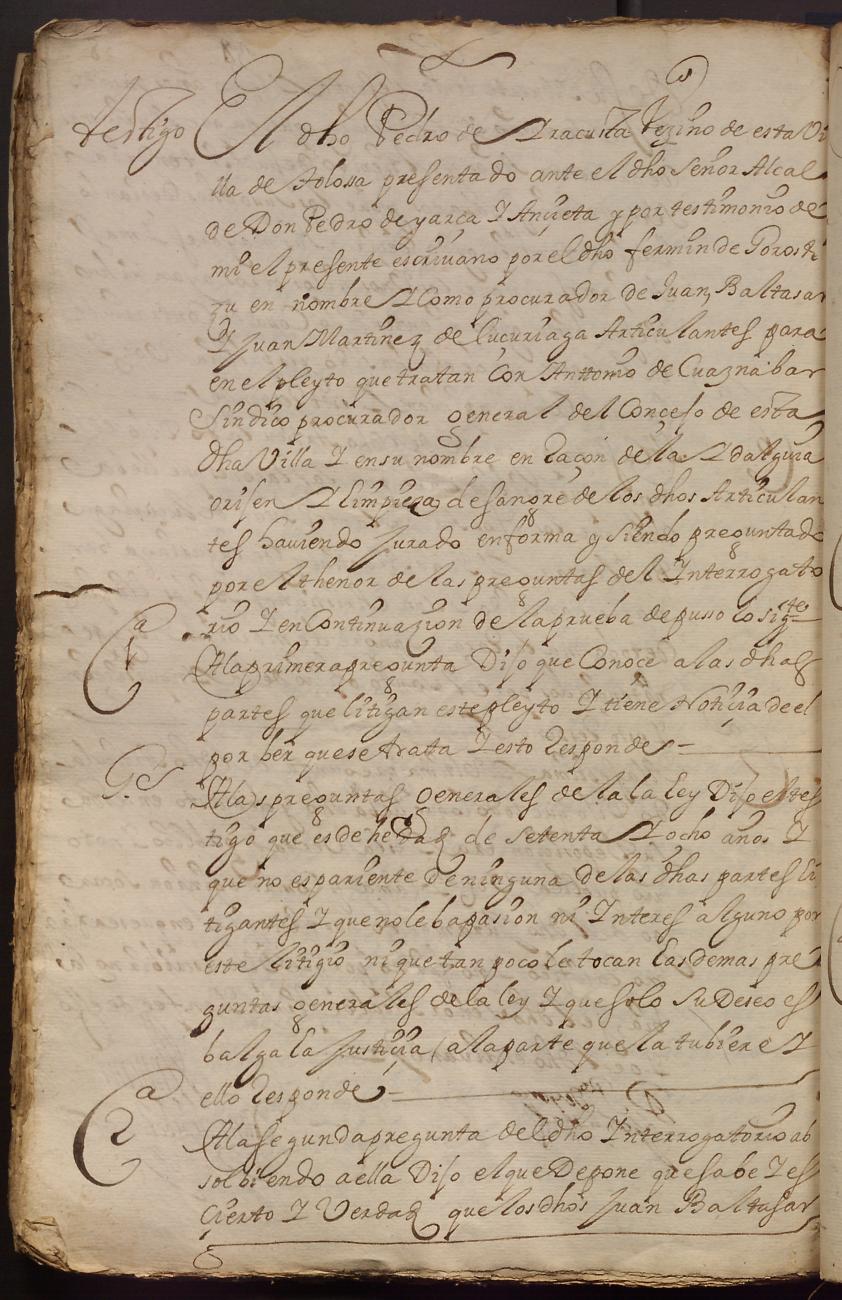 testigo El dho Pedro de Yracusta Vezino de esta Vi
lla de Tolossa presentado ante el dho Señor Alcal
de Don Pedro de yarça Y Ançieta y por testimonio de
mi el presente escrivano por el dho fermin de Gorosti
zu en nombre Y Como procurador de Juan, Baltasar
Y Juan Martinez de Eucuriaga Articulantes para
en el pleyto que tratan Con Anttonio de Cuaznabar
Sindico procurador general del Concejo de esta
dha Villa Y en su nombre en Raçon de la Ydalguia
orijen Y limpieza de sangre de los dhos Articulan
tes haviendo Jurado en forma y siendo preguntado
por el thenor de las preguntas del Interrogato
rio Y en Continuazion de la prueba depusso lo sigte
1a A la primera pregunta Dijo que Conoce a las dhas
partes que litigan este pleyto Y tiene Notiçia de el
por ber que se trata Y esto Responde
Gs A las preguntas generales de la la ley Dijo el tes
tigo que es de hedad de setenta Y ocho años Y
que no es pariente de ninguna de las dhas partes li
tigantes Y que no le ba pasion ni Interes alguno por
este litigio ni que tan poco le tocan las demas pre
guntas generales de la ley Y que solo su Deseo es
balga la Justiçia a la parte que la tubiere Y
ello Responde
2a A la segunda pregunta del dho Interrogatorio ab
solbiendo a ella Dijo el que Depone que sabe Y es
Çierto Y Verdad que los dhos Juan Baltasar